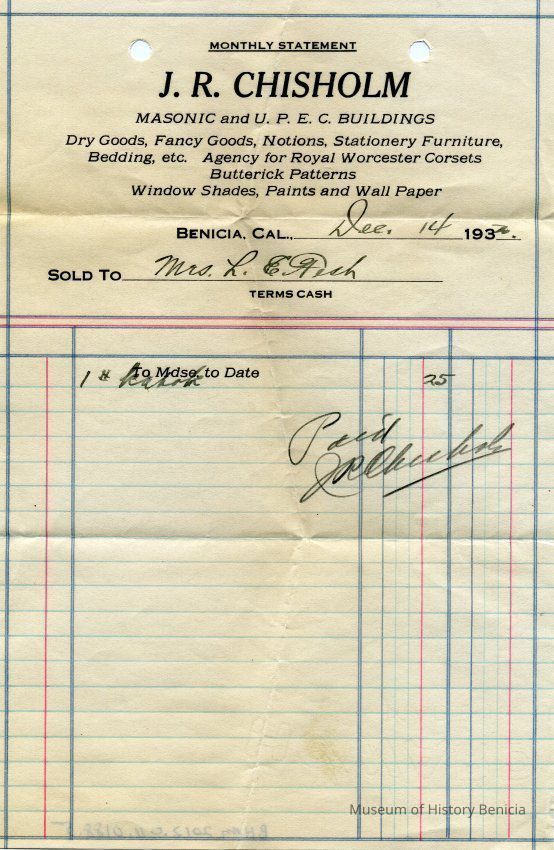 MONTHLY STATEMENT
J. R. CHISHOLM
MASONIC and U. P. E. C. BUILDINGS
Dry Goods, Fancy Goods, Notions, Stationery Furniture,
Bedding, etc. Agency for Royal Worcester Corsets
Butterick Patterns
Window Shades, Paints and Wall Paper
BENICIA, CAL., Dec. 14 193
SOLD TO Mrs. L. E.
TERMS CASH
To Mdse. to Date
1 # Kapok 25
Paid
J R Chisholm
Museum of History Benicia